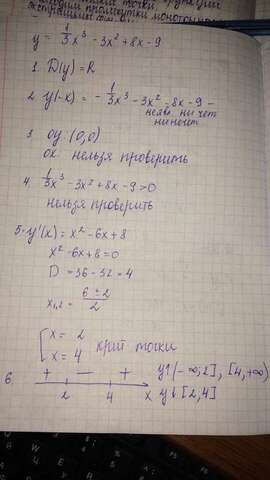 экстремумы
y = 1/3 x³ - 3x² + 8x - 9
1. D(y) = R
2. y(-x) = - 1/3 x³ - 3x² - 8x - 9 -
ни чет
ни нечет
3. oy (0,0)
ox нельзя проверить
4. 1/3 x³ - 3x² + 8x - 9 > 0
нельзя проверить
5. y'(x) = x² - 6x + 8
x² - 6x + 8 = 0
D = 36 - 32 = 4
x₁,₂ = 6 ± 2 / 2
[ x = 2
x = 4 крит точки
6. + − + y↑(-∞; 2], [4, +∞)
2 4 x y↓ [2; 4]